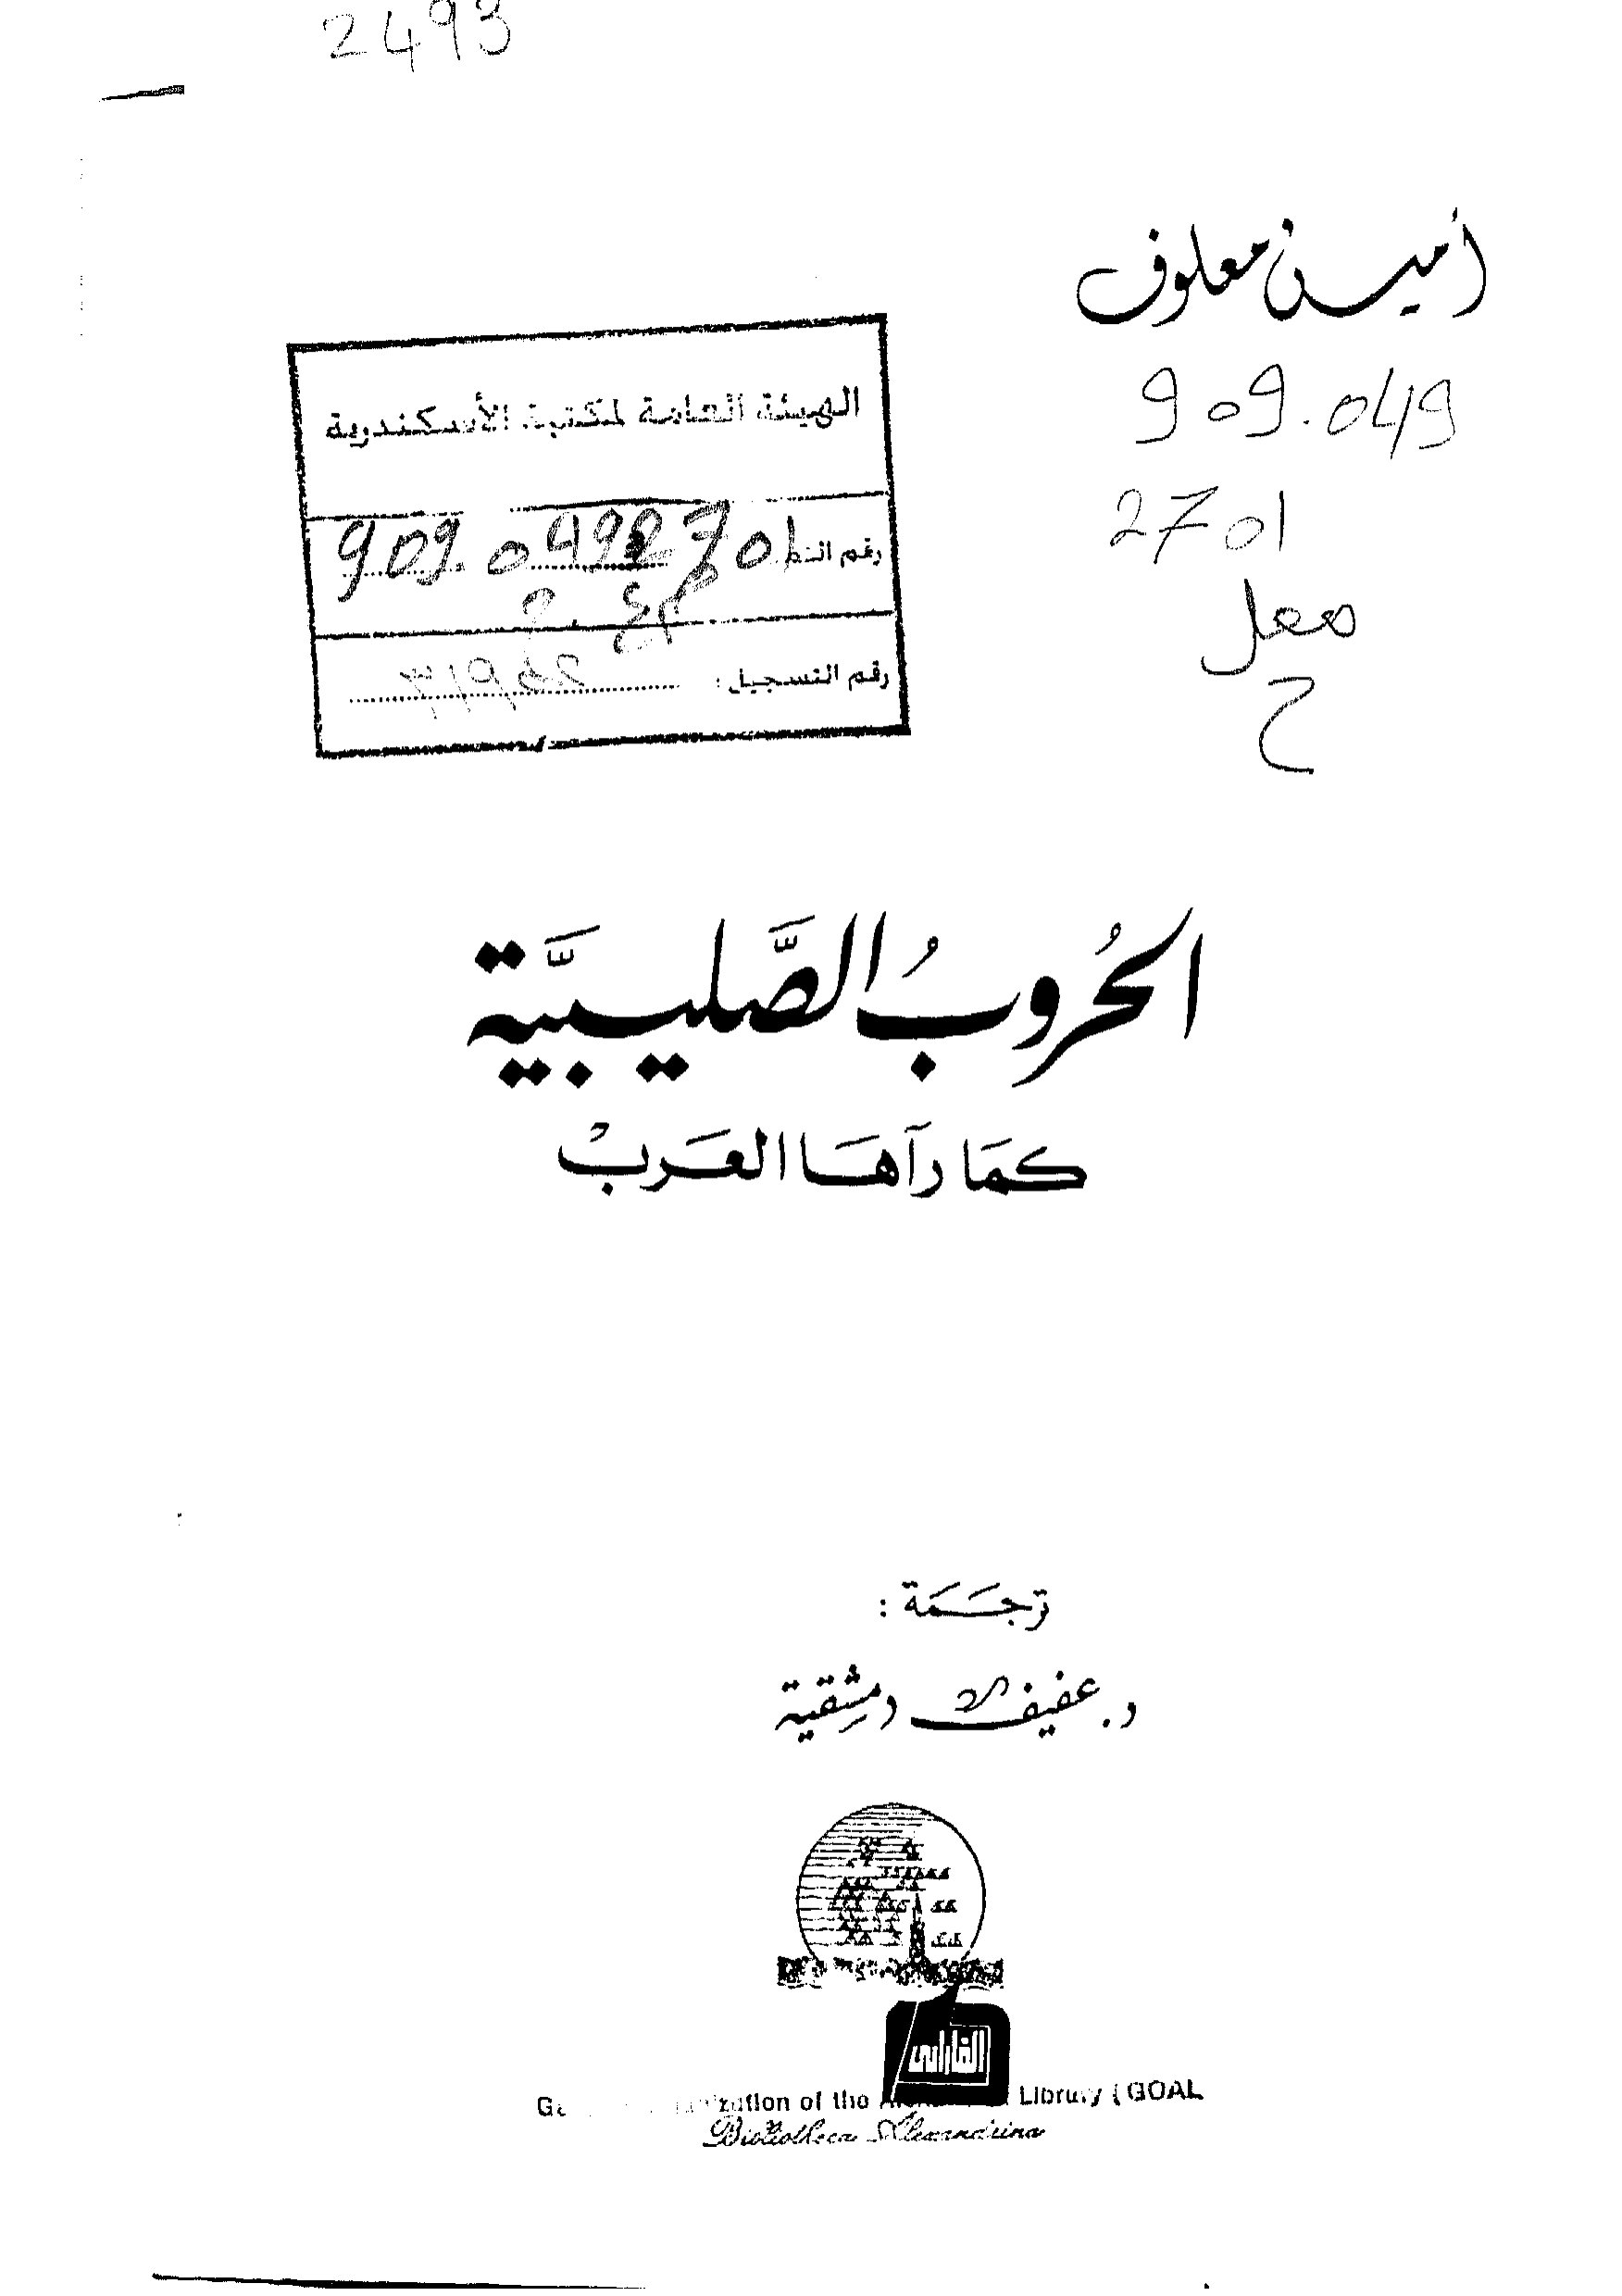 2493
أمين معلوف
909.049
2701
معل
ح
الهيئة العامة لمكتبة الأسكندرية
909.0492701
رقم التسجيل:
الحُروبُ الصَّليبيَّة
كمَا رَآهَا العَرَبْ
ترجَمَة :
د. عفيف دمشقية
الفارابي
of the Library (GOAL
Bibliotheca Alexandrina